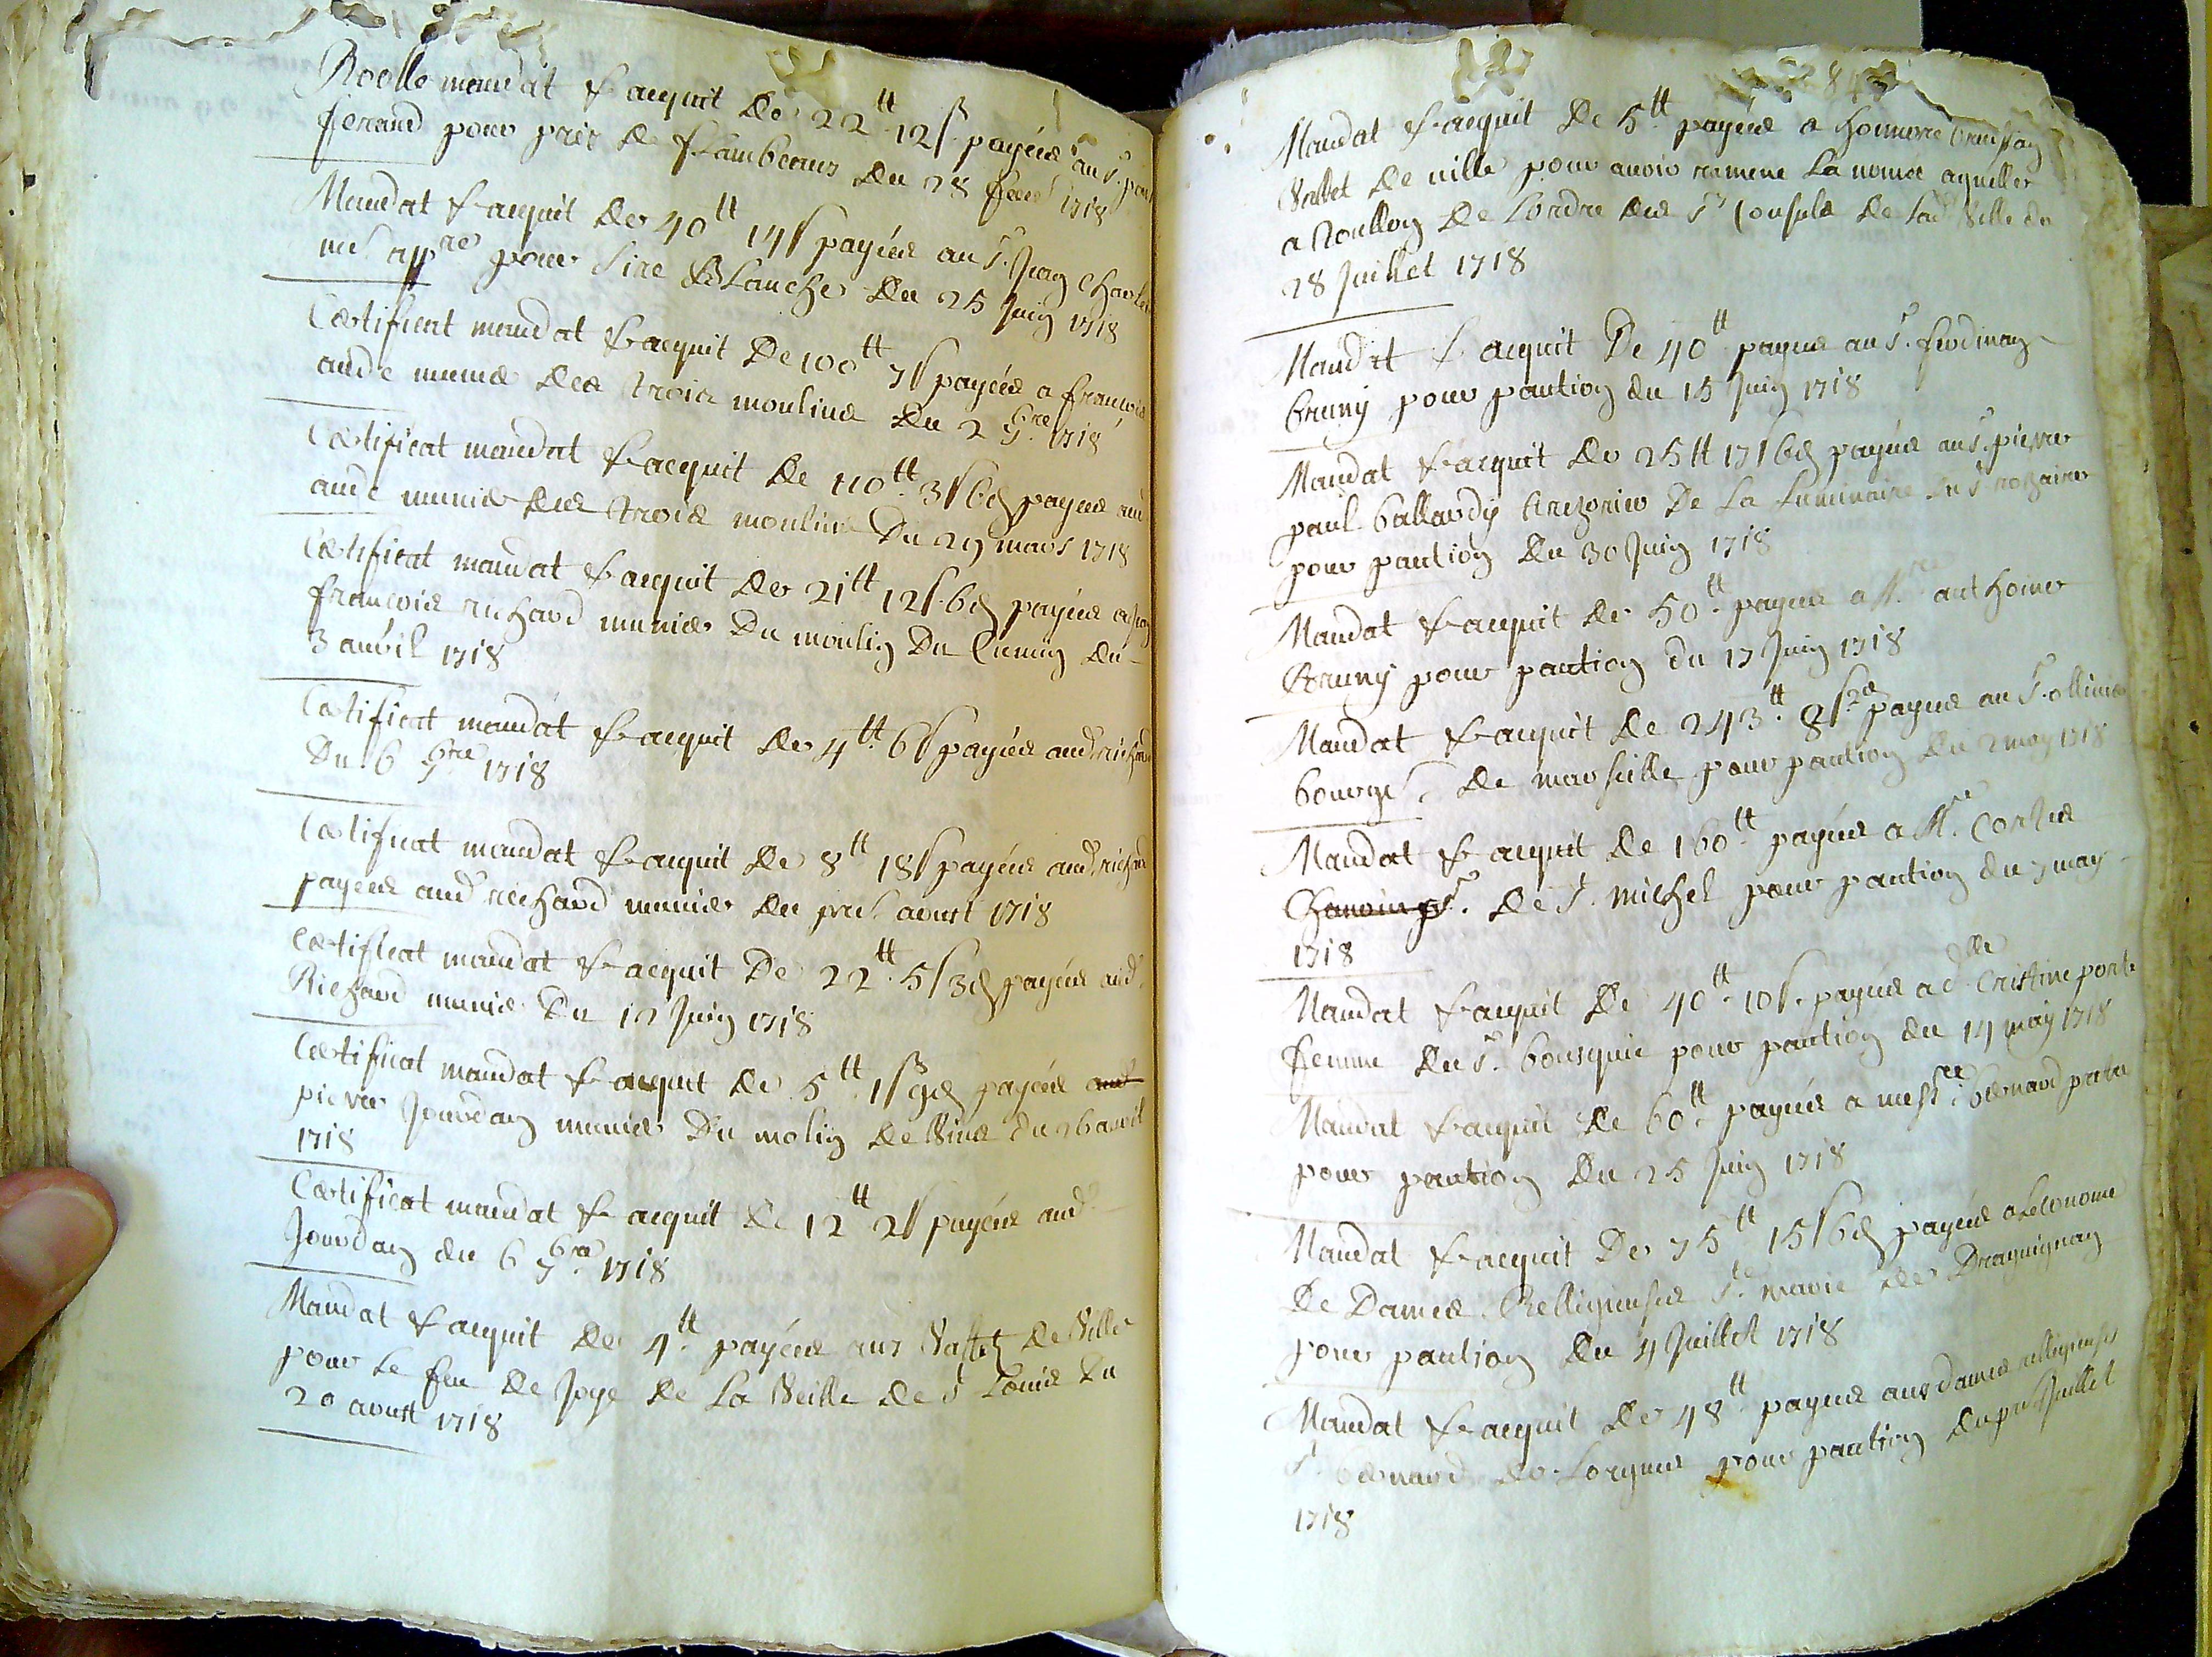 Roolle mandat & acquit de 22tt 12s payées au s.r
ferraud pour prix de flambeaux du 28 feer 1718
Mandat & acquit de 40tt 14s payées au s.r Jean Charles
me appre pour sire blanche du 25 Juin 1718
Certificat mandat & acquit De 100tt 7s payées a francois
aude munier des trois moulins du 2 9bre 1718
Certificat mandat & acquit de 110tt 3s 6d payées aud
aude munier des trois moulins Du 29 mars 1718
Certificat mandat & acquit de 21tt 12s 6d payées a
francois richard munier Du moulin Du du
3 auvril 1718
Certificat mandat & acquit de 4tt 6s payées aud richard
Du 6 9bre 1718
Certificat mandat & acquit de 8tt 18s payées aud richard
payées aud richard munier du pr aoust 1718
Certificat mandat & acquit De 22tt 5s 3d payées aud
Richard munier Du 12 Juin 1718
Certificat mandat & acquit de 5tt 1s 9d payées aud
pierre Jourdan munier Du molin de du 26 avril
1718
Certificat mandat & acquit de 12tt 2s payées aud
Jourdan du 6 9bre 1718
Mandat & acquit de 4tt payées aux Vallets de Ville
pour le feu de Joye de La Veille de st Louis du
20 aoust 1718
Mandat & acquit de 5tt payées a honnoré
Vallet de ville pour avoir ramene La
a Toullon de Lordre des srs Consuls de Lad Ville du
28 Juillet 1718
Mandat & acquit De 40tt payées au s.r ferdinan
bruny pour pantion du 15 Juin 1718
Mandat & acquit de 25tt 17s 6d payées au s. pierre
paul ballardy trezorier De La Luminaire du st rozaire
pour pantion du 30 Juin 1718
Mandat & acquit de 50tt payées a Mre anthoine
Bruny pour pantion du 17 Juin 1718
Mandat & acquit de 243tt 8s payées au s.r ollivier
bourgs de marseille pour pantion du 2 may 1718
Mandat & acquit de 160tt payées a Mre
Chanoin de st michel pour pantion du 7 may
1718
Mandat & acquit De 40tt 10s payées a dlle Cristine porte
femme du s.r bousquie pour pantion du 14 may 1718
Mandat & acquit de 60tt payées a messre bernard
pour pantion du 25 Juin 1718
Mandat & acquit De 75tt 15s 6d payées a Léconome
De Dames Relligieuses ste marie de Draguignan
pour pantion du 4 Juillet 1718
Mandat & acquit de 48tt payées aux dames relligieuses
st bernard de Lorgues pour pantion du pr Juillet
1718